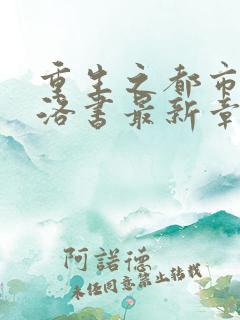 重生之都市
洛书最新章
阿諾德
未经同意禁止转载